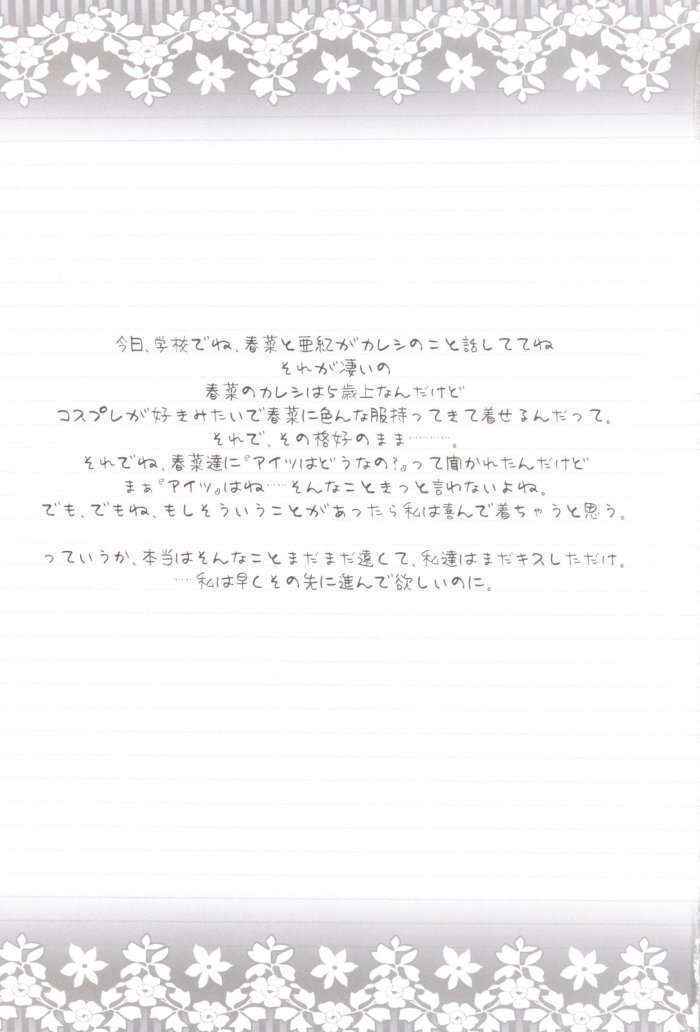 今日、学校でね、春菜と亜紀がカレシのこと話しててね
それが凄いの
春菜のカレシは5歳上なんだけど
コスプレが好きみたいで春菜に色んな服持ってきて着せるんだって。
それで、その格好のまま………。
それでね、春菜達に『アイツはどうなの?』って聞かれたんだけど
まぁ『アイツ』はね……そんなこときっと言わないよね。
でも、でもね、もしそういうことがあったら私は喜んで着ちゃうと思う。
っていうか、本当はそんなことまだまだ遠くて、私達はまだキスしただけ。
……私は早くその先に進んで欲しいのに。